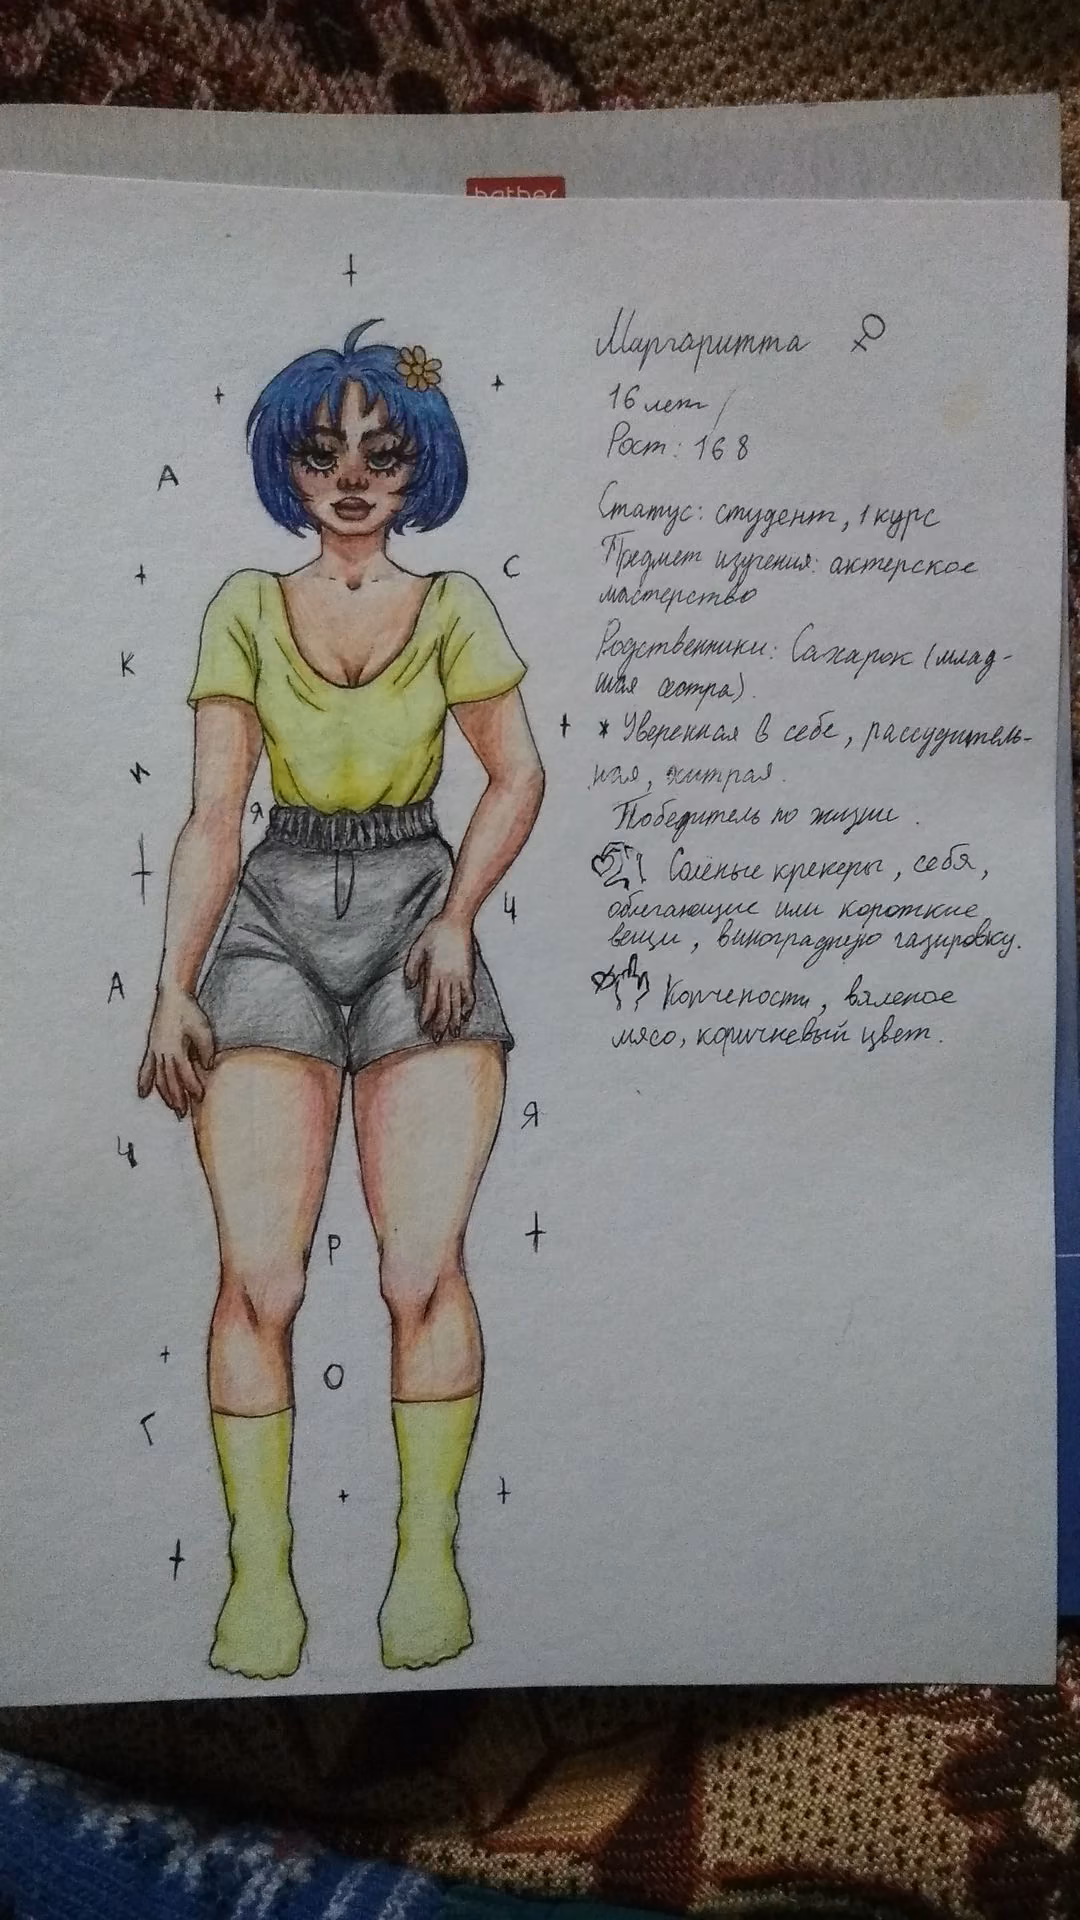 hatber
Маргаритта ♀
16 лет
Рост: 168
Статус: студент, 1 курс
Предмет изучения: актерское
мастерство
Родственники: Сахарок (млад-
шая сестра).
* Уверенная в себе, рассудитель-
ная, хитрая.
Победитель по жизни.
Солёные крекеры, себя,
облегающие или короткие
вещи, виноградную газировку.
Копчености, вяленое
мясо, коричневый цвет.
А
С
К
И
Я
Ч
А
Я
Ч
Р
О
Г